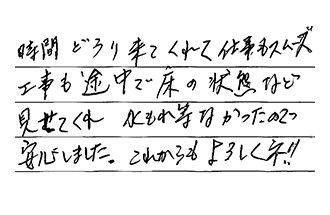 時間どうり来てくれて仕事もスムーズ
工事も途中で床の状態など
見せてくれ 水もれ等なかったので
安心しました。これからもよろしくネ!!